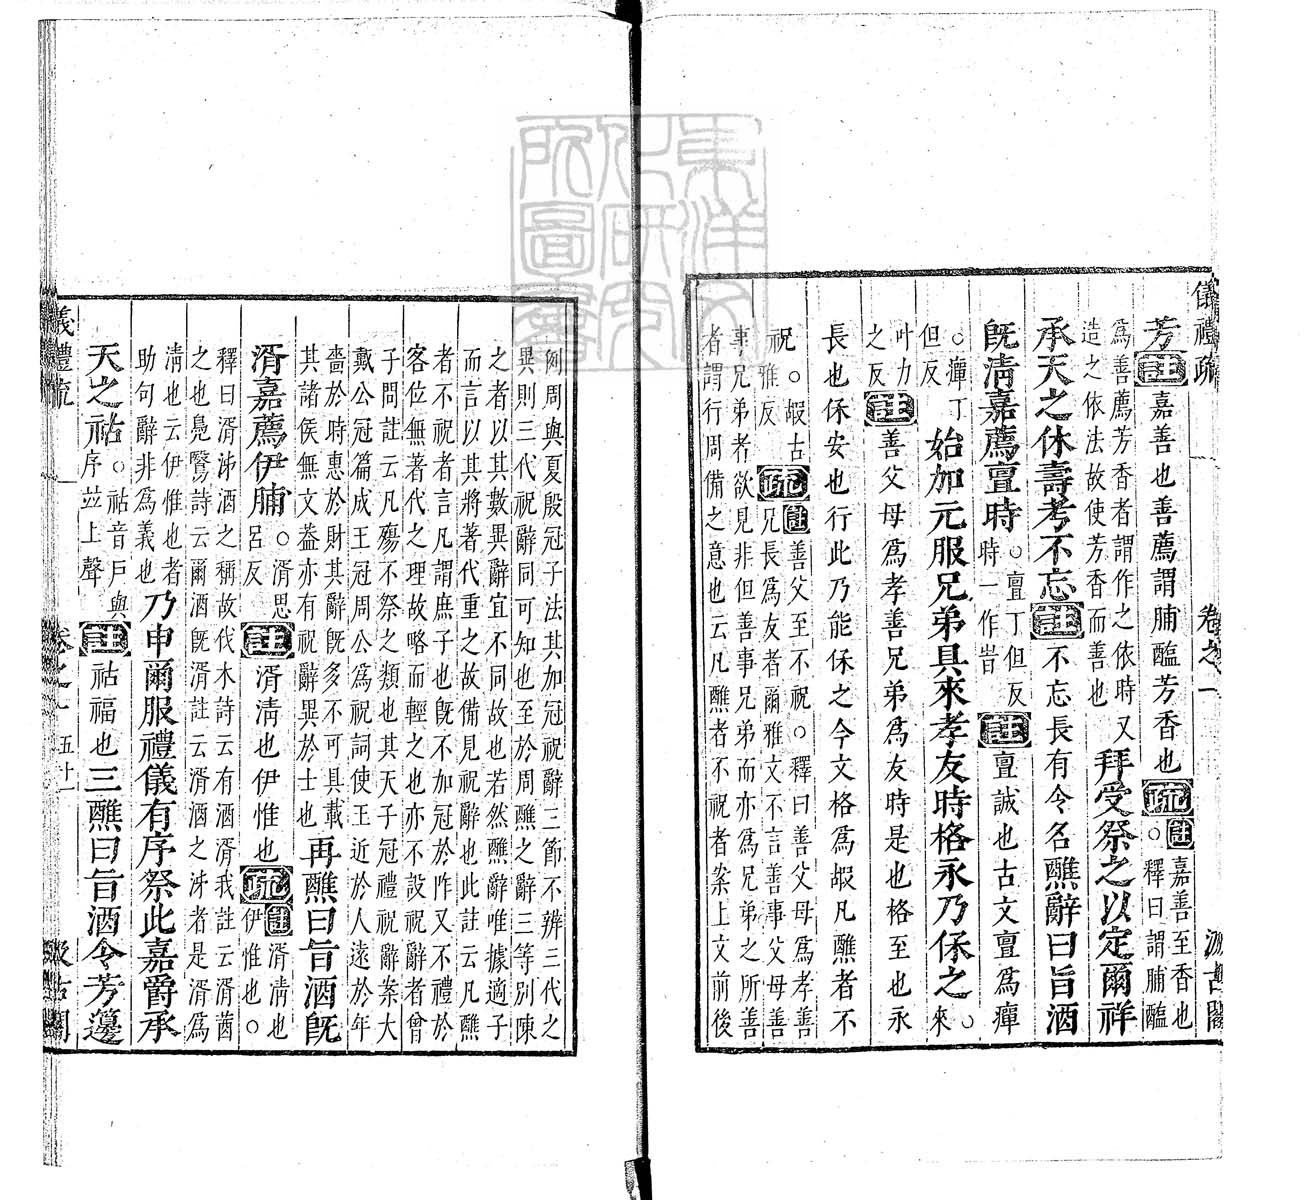 儀禮疏 卷之一 汲古閣
芳註嘉善也善薦謂脯醢芳香也疏註嘉善至香也○釋曰謂脯醢
爲善薦芳香者謂作之依時又
造之依法故使芳香而善也拜受祭之以定爾祥
承天之休壽考不忘註不忘長有令名醮辭曰旨酒
旣淸嘉薦亶時○亶丁但反時一作旹註亶誠也古文亶爲癉
○癉丁但反始加元服兄弟具來孝友時格永乃保之○來
叶力之反註善父母爲孝善兄弟爲友時是也格至也永
長也保安也行此乃能保之今文格爲嘏凡醮者不
祝○嘏古雅反疏註善父至不祝○釋曰善父母爲孝善兄長爲友者爾雅文不言善事父母善
事兄弟者欲見非但善事兄弟而亦爲兄弟之所善
者謂行周備之意也云凡醮者不祝者案上文前後
例周與夏殷冠子法其加冠祝辭三節不辨三代之
異則三代祝辭同可知也至於周醮之辭三等別陳
之者以其數異辭宜不同故也若然醮辭唯據適子
而言以其將著代重之故備見祝辭也此註云凡醮
者不祝者言凡謂庶子也旣不加冠於阼又不禮於
客位無著代之理故略而輕之也亦不設祝辭者曾
子問註云凡殤不祭之類也其天子冠禮祝辭案大
戴公冠篇成王冠周公爲祝詞使王近於人遠於年
嗇於時惠於財其辭旣多不可具載
其諸侯無文蓋亦有祝辭異於士也再醮曰旨酒旣
湑嘉薦伊脯○湑思呂反註湑淸也伊惟也疏註湑淸也伊惟也○
釋曰湑泲酒之稱故伐木詩云有酒湑我註云湑莤
之也鳧鷖詩云爾酒旣湑註云湑酒之泲者是湑爲
淸也云伊惟也者
助句辭非爲義也乃申爾服禮儀有序祭此嘉爵承
天之祜○祜音戶與序竝上聲註祜福也三醮曰旨酒令芳籩
儀禮疏 卷之一 五十一 汲古閣